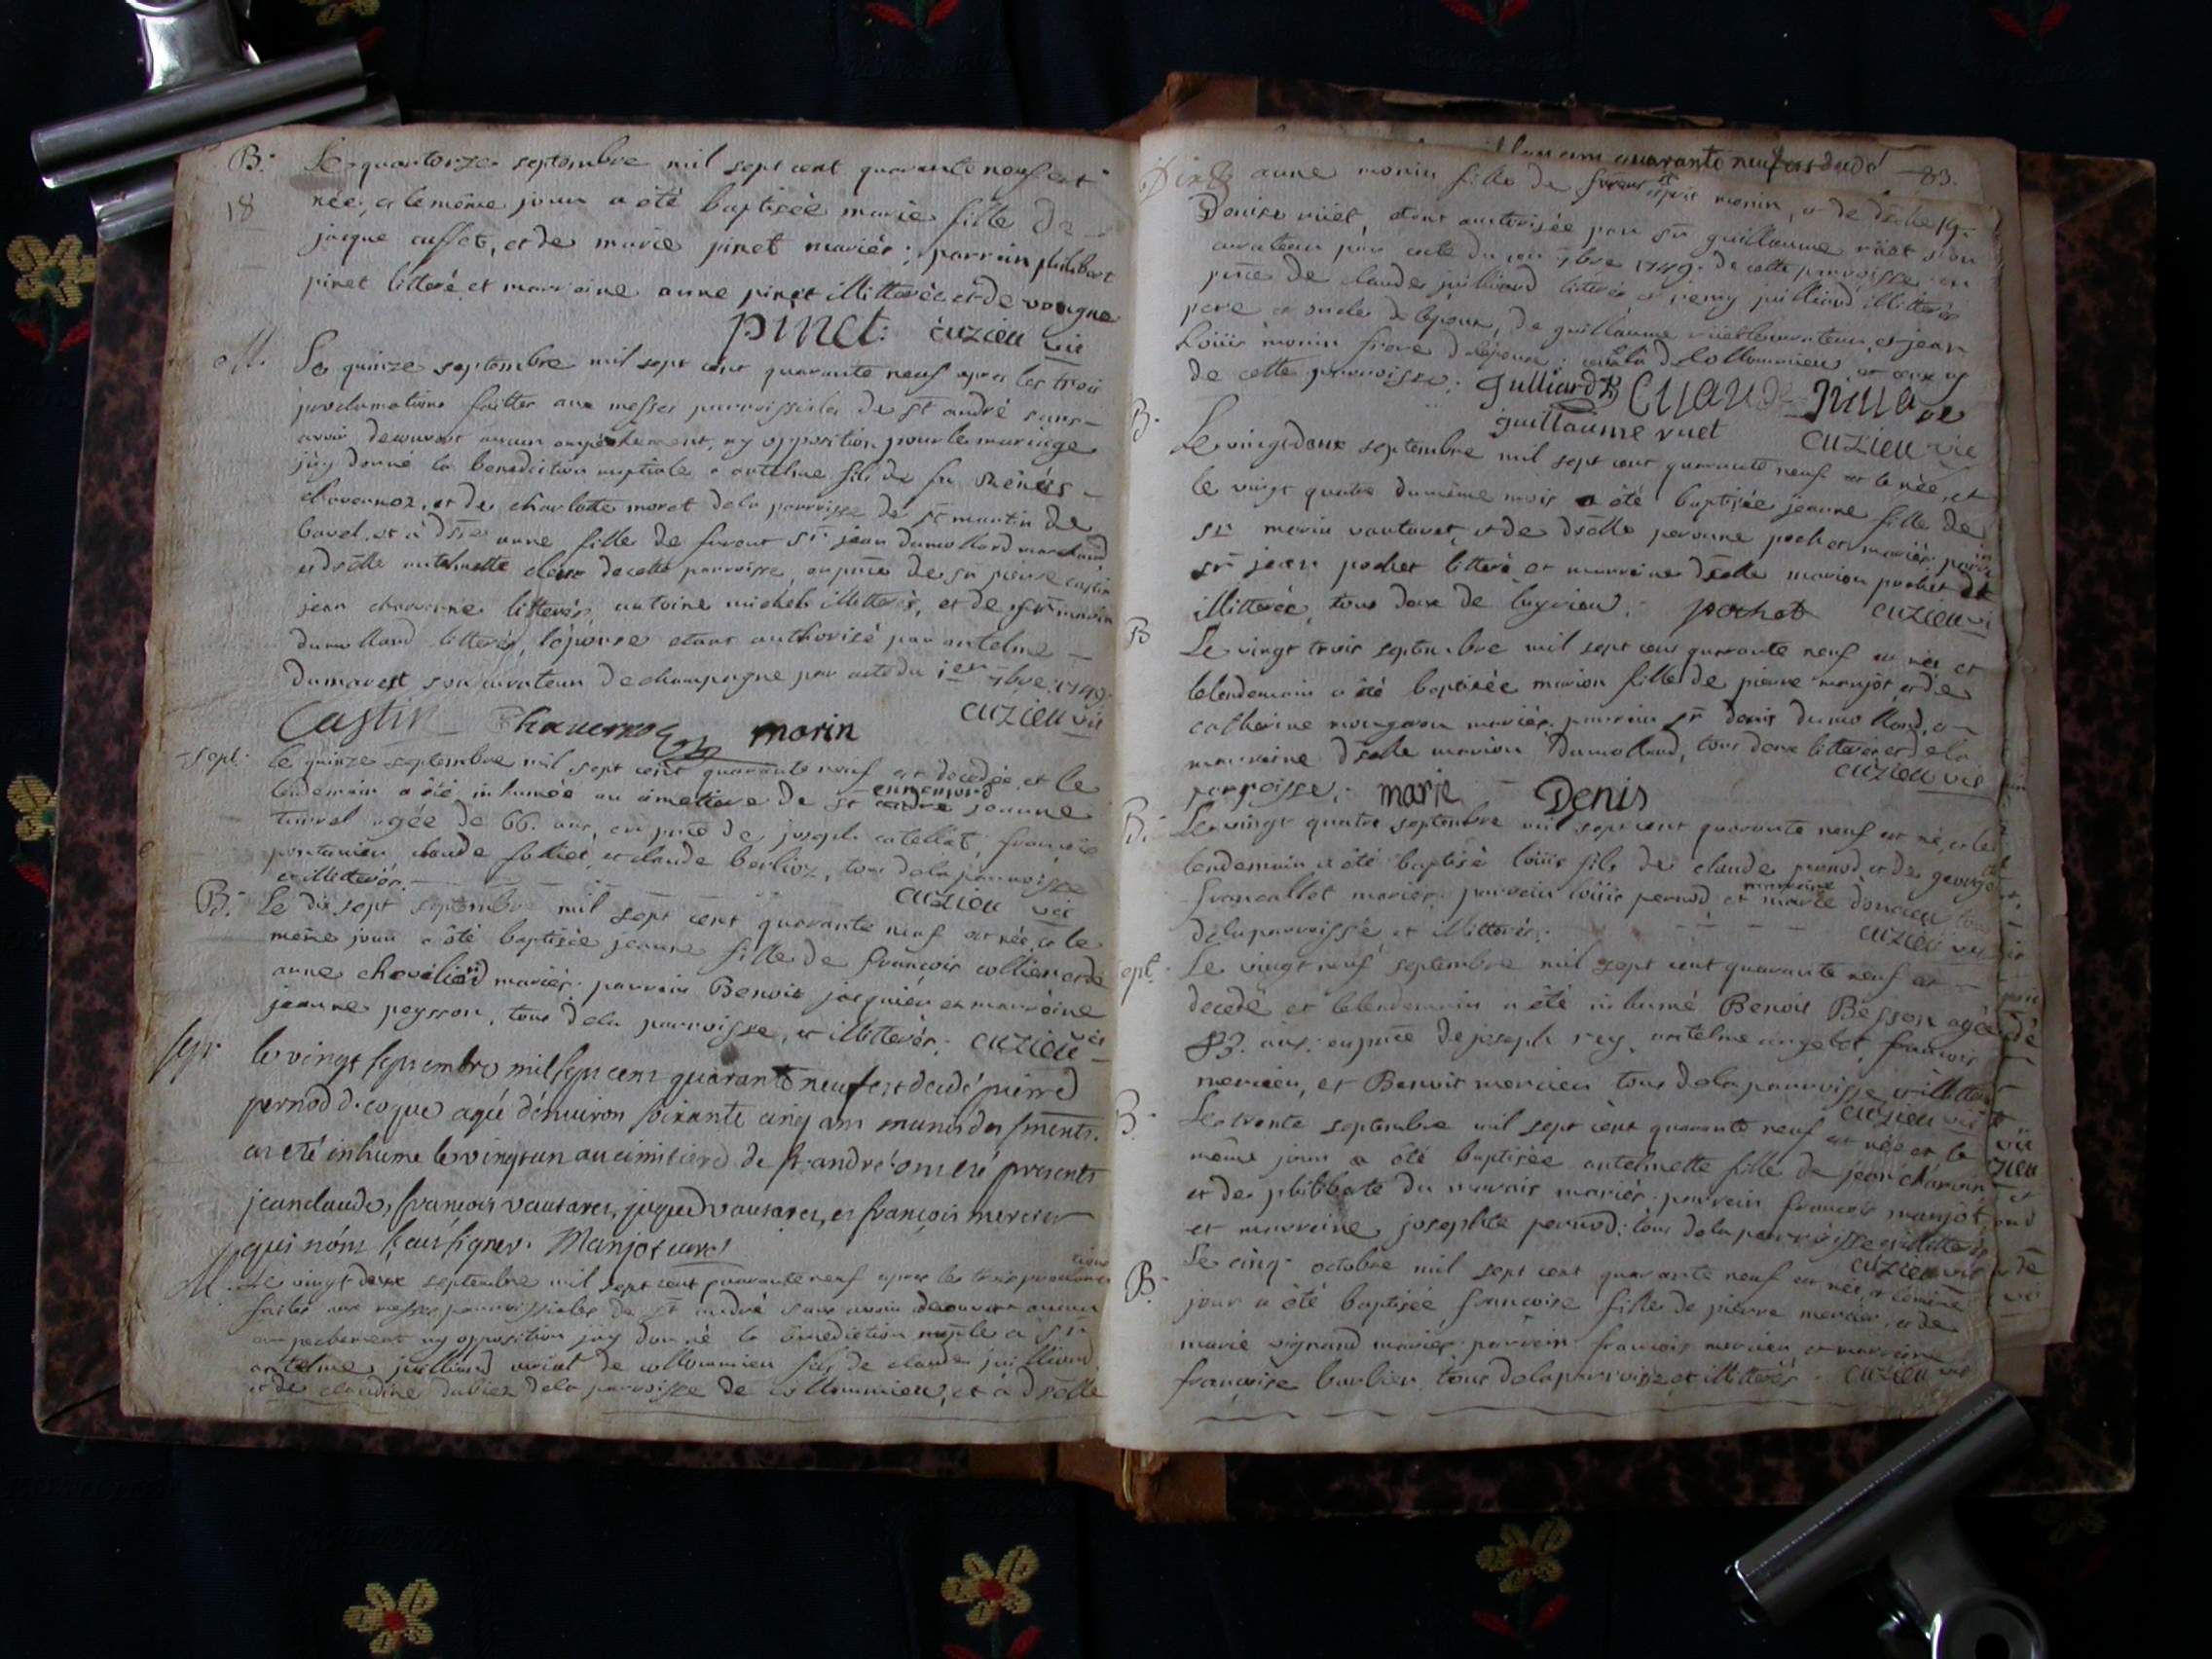 B. Le quatorze septembre mil sept cent quarante neuf est
18 née, et le même jour a été baptisée marie fille de
jacque cuffet, et de marie pinet mariés; parrain philibert
pinet litteré et marraine anne pinet illitterée et de vongne
pinet. cuzieu vic
M. Le quinze septembre mil sept cent quarante neuf apres les trois
proclamations faittes aux messes parroissiales de st andré sans
avoir decouvert aucun empêchement, ny opposition pour le mariage
j'ay donné la benediction nuptiale a antelme fils de fu
chavernoz, et de charlotte moret de la parroisse de st martin de
bavel, et à dlle anne fille de fu sr jean dumollard marchand
et dlle antelmette de cette parroisse, en pnce de sr pierre castin
jean chaverne litterés, antoine michel illitteré, et de sr marin
dumollard litterés, l'épouse etant authorisé par antelme
dumarest son curateur de champagne par acte du 1er 7bre 1749.
Castin Chavernoz morin cuzieu vic
sept. le quinze septembre mil sept cent quarante neuf est decedée, et le
lendemain a été inhumée au cimetiere de st jeanne
agée de 66. ans, en pnce de joseph catellat, françois
claude et claude berlioz, tous de la parroisse
et illitterés. cuzieu vic
B. Le dix sept septembre mil sept cent quarante neuf est née, et le
même jour a été baptisée jeanne fille de françois collier et de
anne chevélier mariés. parrain Benoit jacquier et marraine
jeanne peysson, tous de la parroisse, et illitterés. cuzieu vic
sept. le vingt septembre mil sept cent quarante neuf est decedé pierre
pernod d. coque agé d'environ soixante cinq ans munis des sments.
et eté inhume le vingt un au cimitiere de st andré. ont eté presents
jean claude, francois vautaret, jaque vautaret, et françois mercier
qui n'ont sçeu signer. Manjot curé
M. Le vingt deux septembre mil sept cent quarante neuf apres les trois proclamations
faites aux messes parroissiales de st andré sans avoir decouvert aucun
empechement ny opposition j'ay donné la benediction nuptle à sr
antelme juilliard de collommieu fils de claude juilliard
et de claudine dubiez de la parroisse de collommieu, et à dlle
83.
anne monin fille de esprit monin, et de dlle
Denise rüet, etant authorisée par sr guillaume rüet son
curateur par acte du 7bre 1749. de cette parroisse en
pnce de claude juilliard litteré et remy juilliard illitteré
pere et oncle de l'époux, de guillaume rüet le curateur, et jean
Loüis monin frere de l'épouse; de Collommieu, et ceux cy
de cette parroisse. Julliard Claude Juillard
guillaume ruet cuzieu vic
B. Le vingt deux septembre mil sept cent quarante neuf est la née, et
le vingt quatre du même mois a été baptisée jeanne fille de
sr marin vautaret, et de dlle peronne pochet mariés; parrain
sr jean pochet litteré et marraine dlle marion pochet
illitterée, tous deux de lugrieu. pochet cuzieu vi
B Le vingt trois septembre mil sept cent quarante neuf est née et
le lendemain a été baptisée marion fille de pierre manjot et de
catherine mongeron mariés. parrain sr denis dumollard, et
marraine dlle marion dumollard, tous deux litterés et de la
parroisse. marie Denis cuzieu vic
B. Le vingt quatre septembre mil sept cent quarante neuf est né, et le
lendemain a été baptisé loüis fils de claude pernod et de george
francallet mariés. parrain loüis pernod et marraine marie doncieu tous
de la parroisse et illitterés. cuzieu vic
sept. Le vingt neuf septembre mil sept cent quarante neuf est
decedé et le lendemain a été inhumé Benoit Besson agé de
83. ans. en pnce de joseph rey, antelme angelot, francois
mercier, et Benoit mercier tous de la parroisse et illitterés
cuzieu vic
B. Le trente septembre mil sept cent quarante neuf est née et le
même jour a été baptisée antelmette fille de jean charvin
et de philiberte du marais mariés. parrain francois manjot
et marraine josephte pernod. tous de la parroisse et illitterés
cuzieu vic
B. Le cinq octobre mil sept cent quarante neuf est née, et le même
jour a été baptisée françoise fille de pierre mercier, et de
marie vignand mariés. parrain francois mercier et marraine
françoise barbier tous de la parroisse et illitterés. cuzieu vic